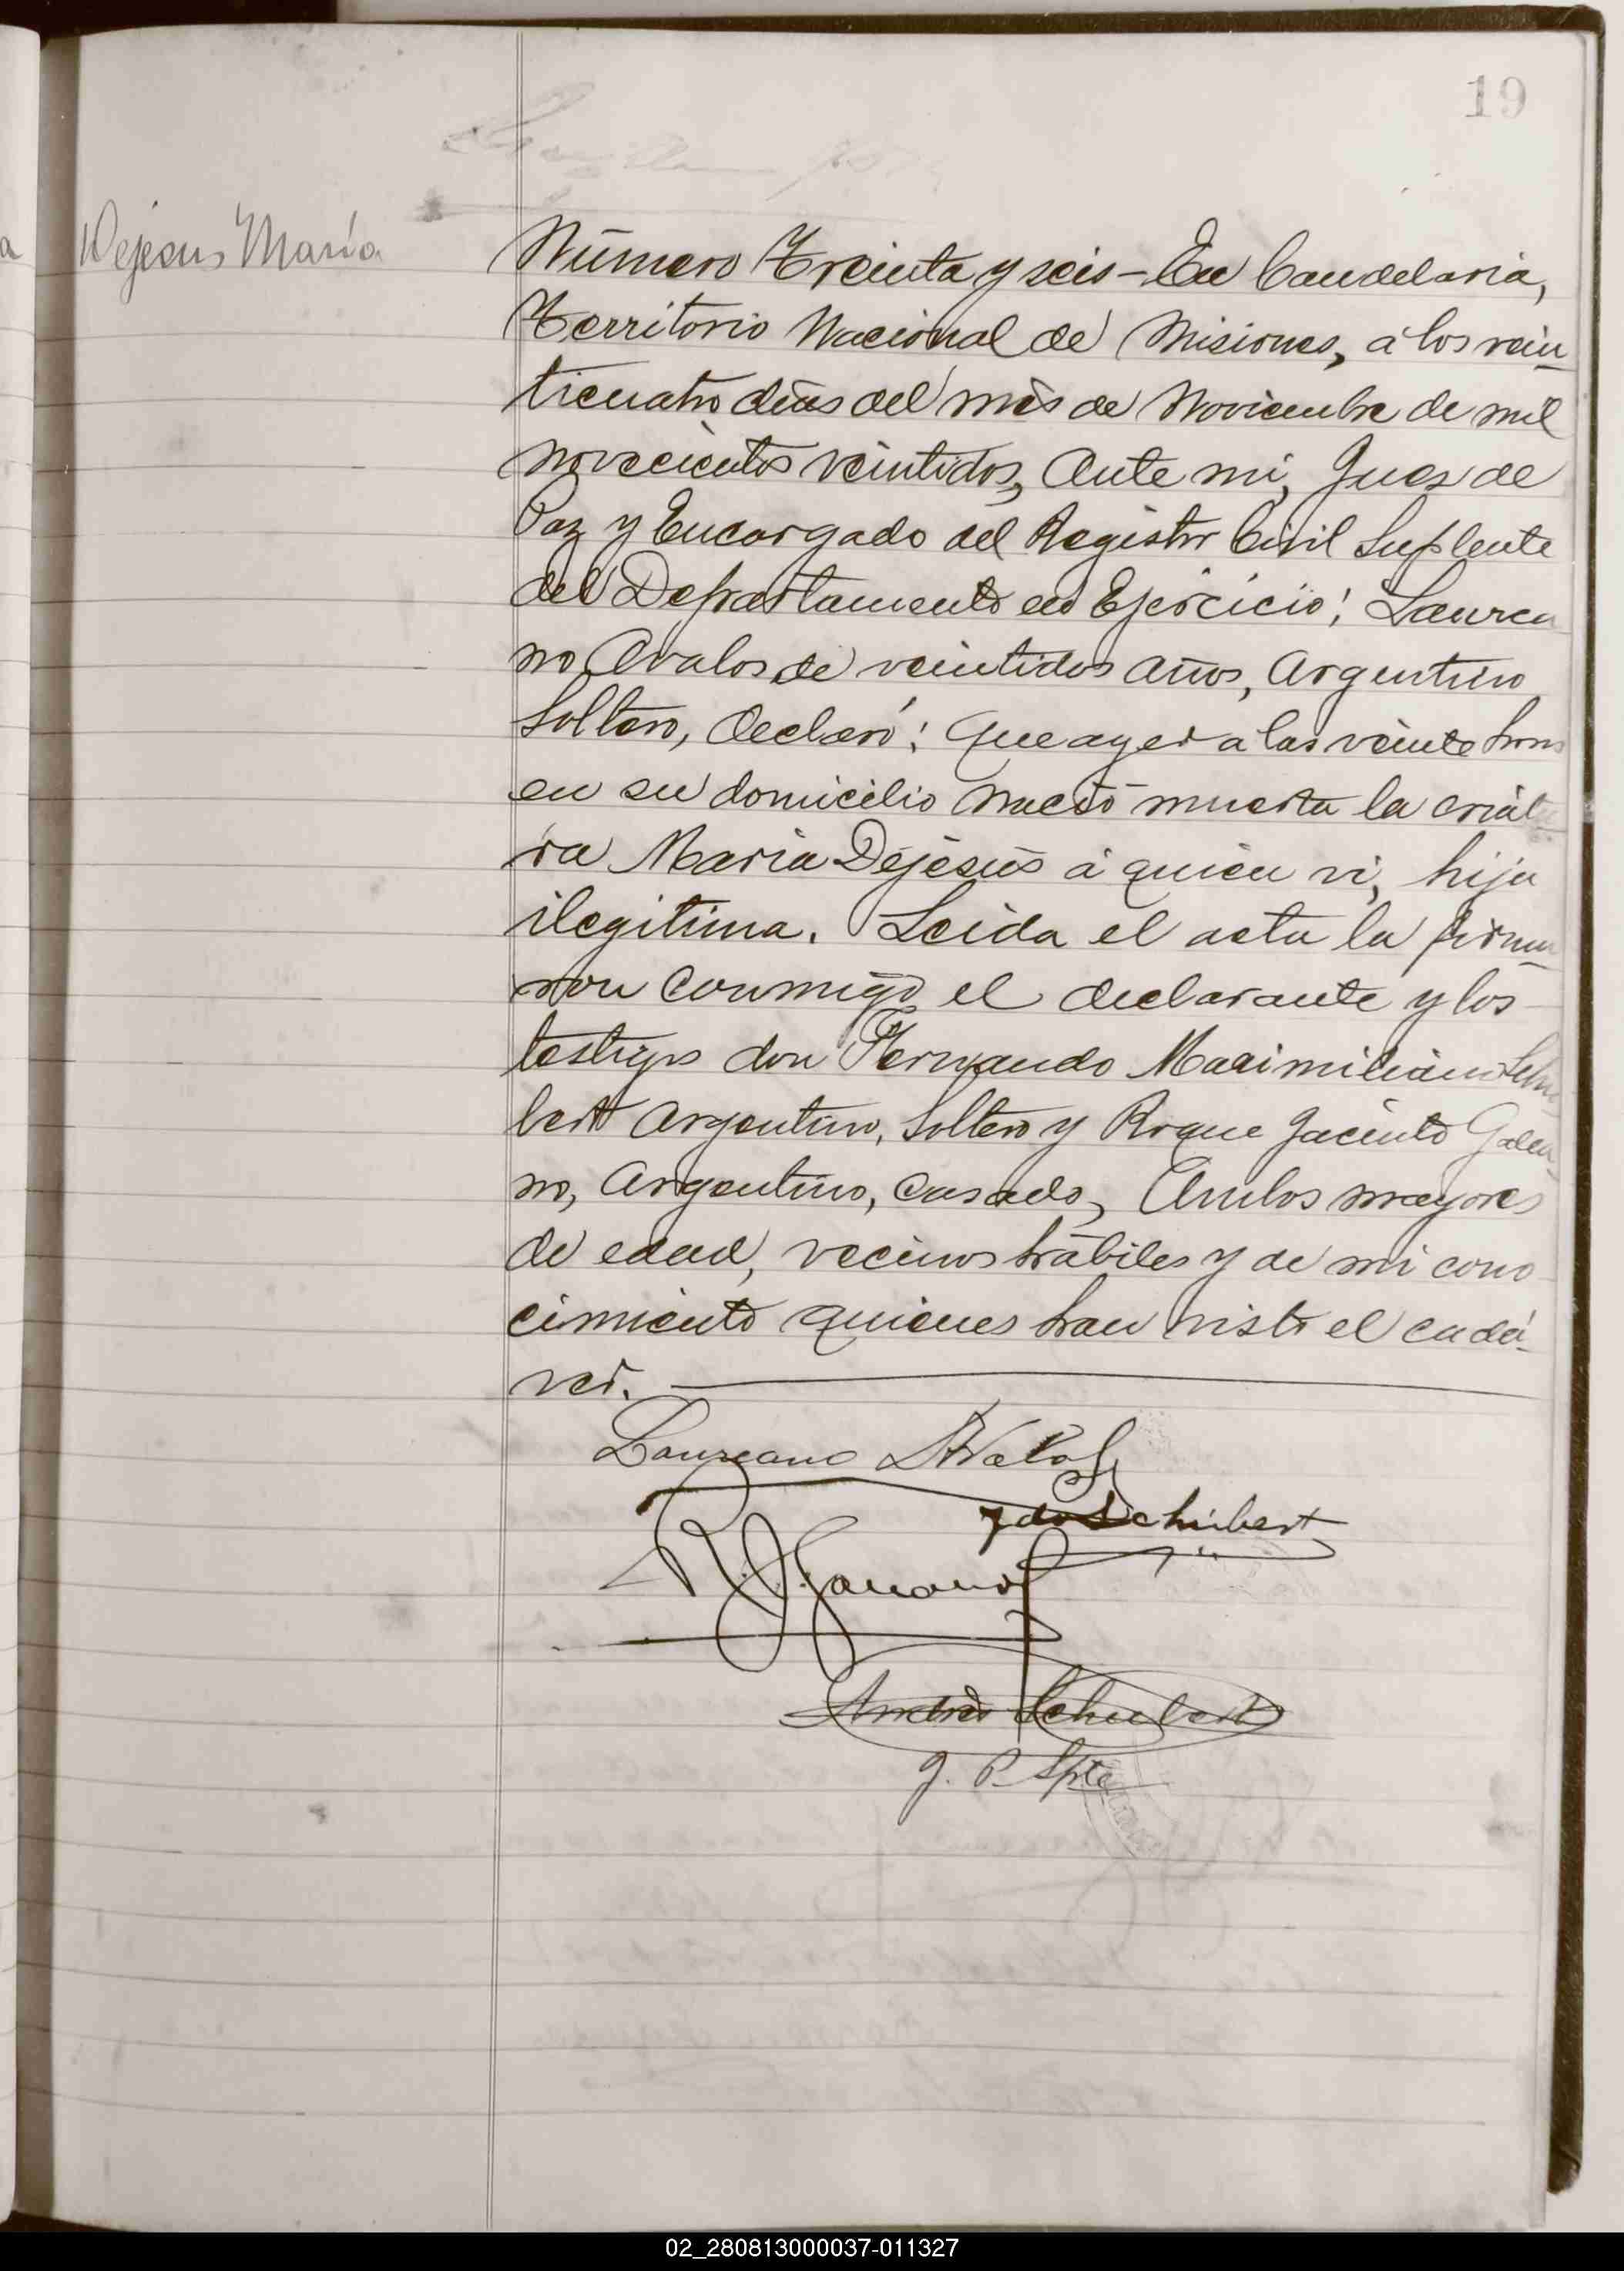 19
Dejesus María
Número Treinta y seis - En Candelaria,
Territorio Nacional de Misiones, á los vein
ticuatro dias del mes de Noviembre de mil
novecientos veintidos, Ante mi, Juez de
Paz y Encargado del Registro Civil Suplente
del Departamento en Ejercicio; Laurea
no Avalos de veintidos años, Argentino
Soltero, declaró: Que ayer a las veinte horas
en su domicilio nació muerta la criatu
ra María Dejesús á quien vi, hija
ilegitima. Leida el acta la firma
ron conmigo el declarante y los
testigos don Fernando Maximiliano Schu
bert Argentino, Soltero y Roque Jacinto Galea
no, Argentino, Casado, Ambos mayores
de edad, vecinos hábiles y de mi cono
cimiento quienes han visto el cadá-
ver.
Laureano Avalos
Fdo Schubert
R. J. Galeano
Andrés Schubert
J. P. Spte
02_280813000037-011327